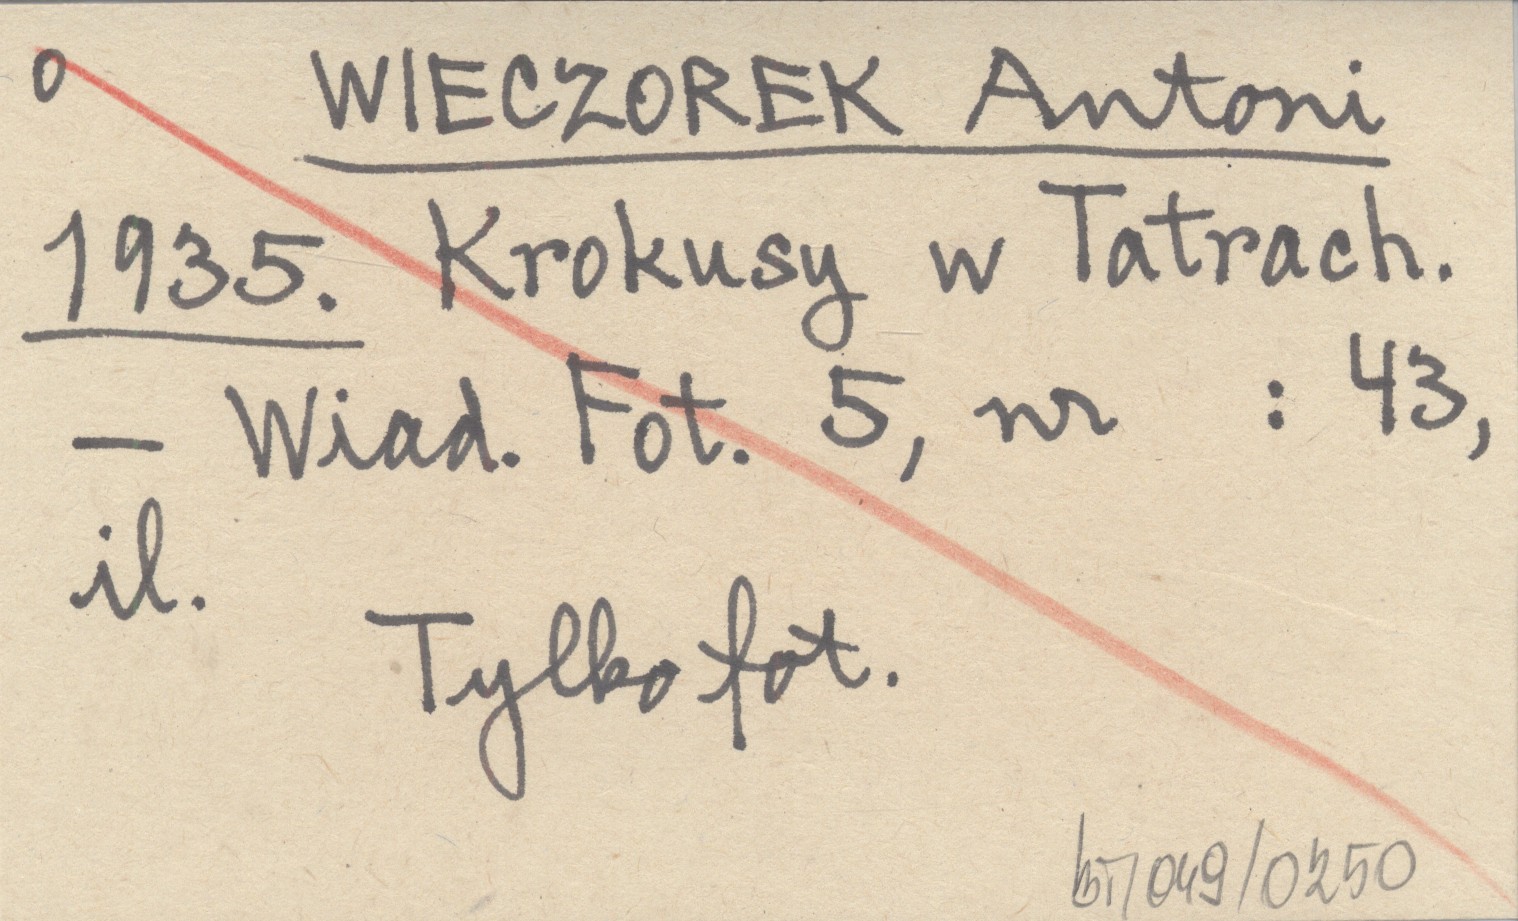 o WIECZOREK Antoni
1935. Krokusy w Tatrach.
— Wiad. Fot. 5, nr : 43,
il.
Tylko fot.
049/0250